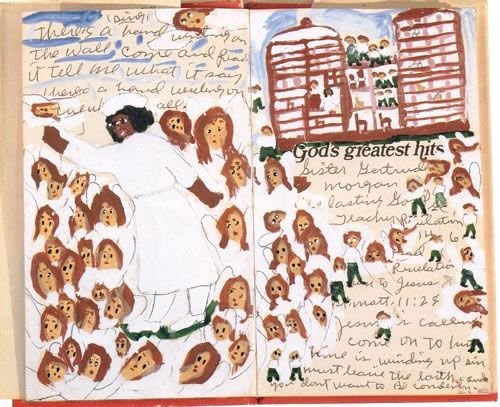 sing
There's a hand writing on
the wall, come and read
it tell me what it say
There's a hand writing on
all.
God's greatest hits
Sister Gertrude
morgan
lasting Gospel
Teacher, Revelation
14 6
Read
Revelation
to Jesus
matt. 11:28
Jesus is calling
come on To him
time is winding up sin
must leave the earth and
you dont want to Be condem